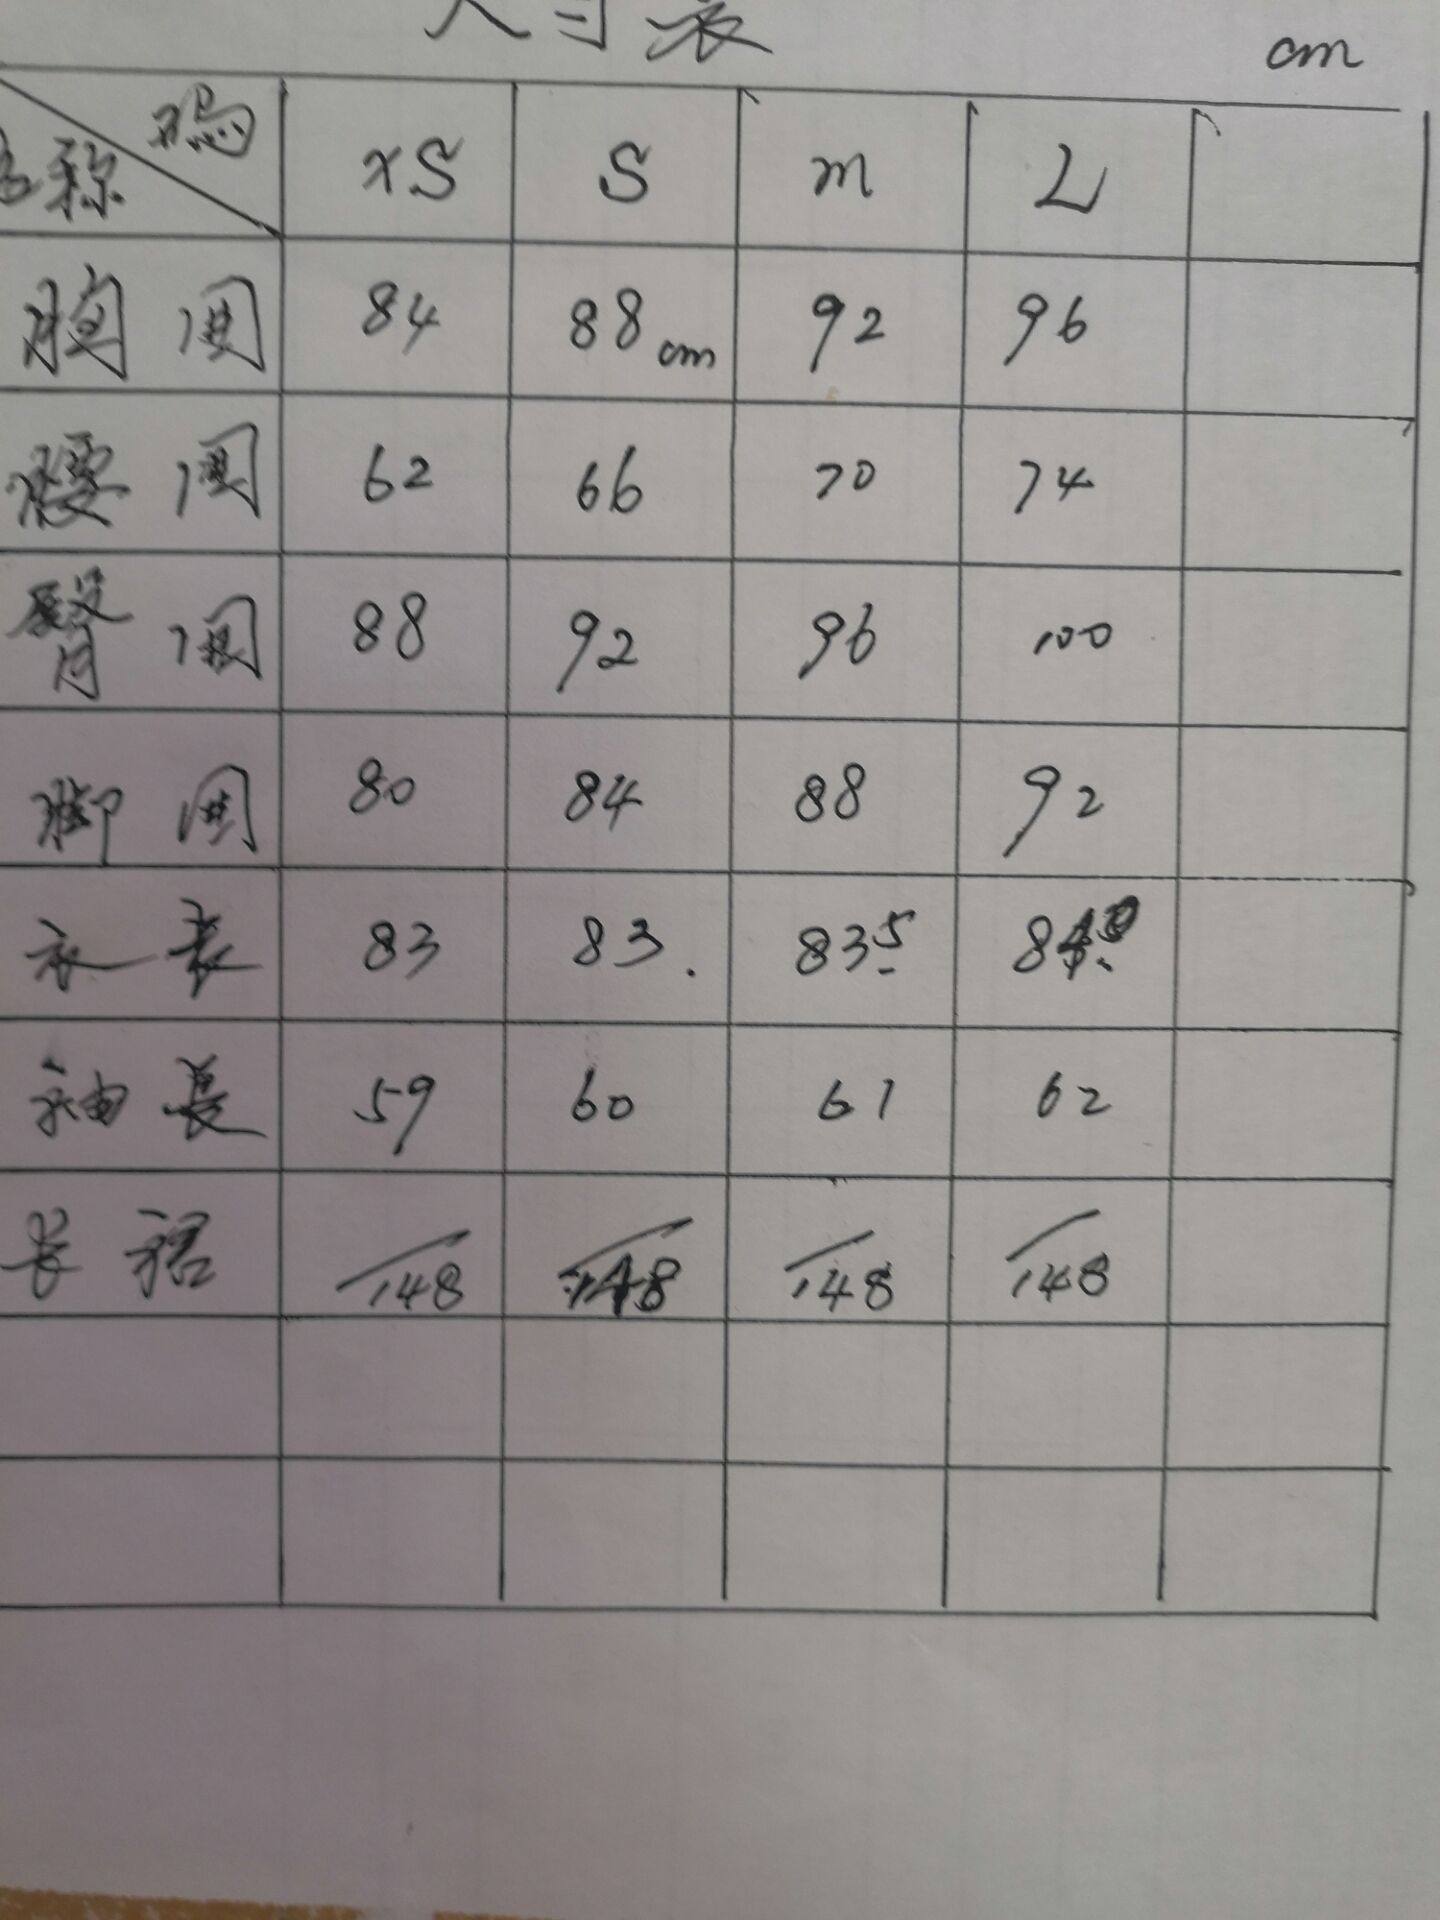 尺寸表 cm
码
名称 XS S m L
胸围 84 88cm 92 96
腰围 62 66 70 74
臀围 88 92 96 100
脚围 80 84 88 92
衣長 83 83. 835
袖長 59 60 61 62
长裙 148 148 148 148